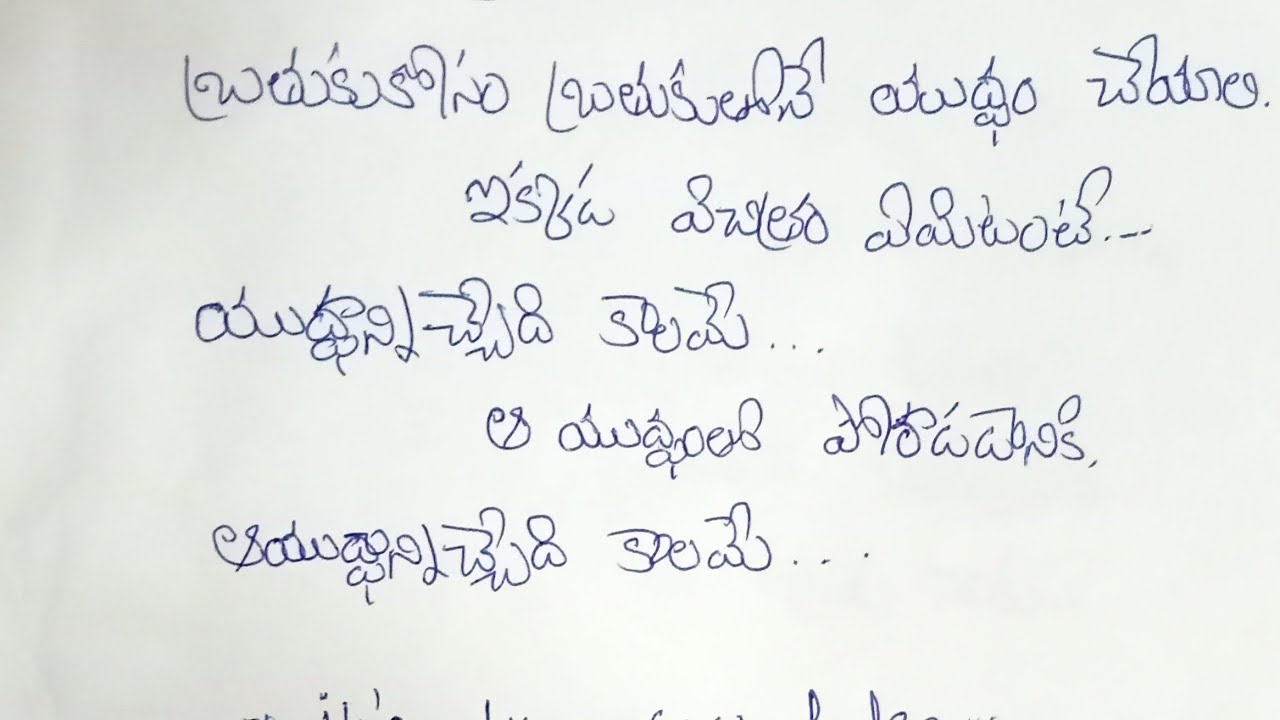 బ్రతుకుకోసం బ్రతుకుతోనే యుద్ధం చేయాలి.
ఇక్కడ విచిత్రం ఏమిటంటే...
యుద్ధాన్నిచ్చేది కాలమే...
ఆ యుద్ధంలో పోరాడడానికి,
ఆయుధ్ధాన్నిచ్చేది కాలమే....